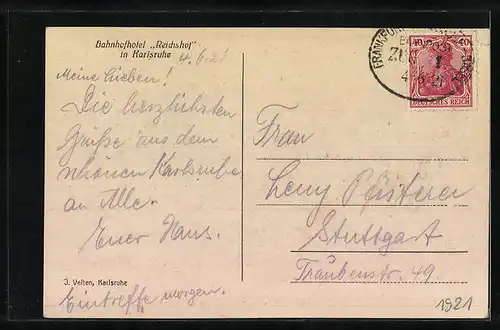 Bahnhofhotel „Reichshof"
in Karlsruhe
4.6.21
Meine Lieben!
Die herzlichsten
Grüße aus dem
schönen Karlsruhe
an Alle.
Euer Hans.
J. Velten, Karlsruhe
Eintreffe morgen.
40 40
DEUTSCHES REICH
FRANKFURT
ZUG
Frau
Leny Pfisterer
Stuttgart
Traubenstr. 49.
1921